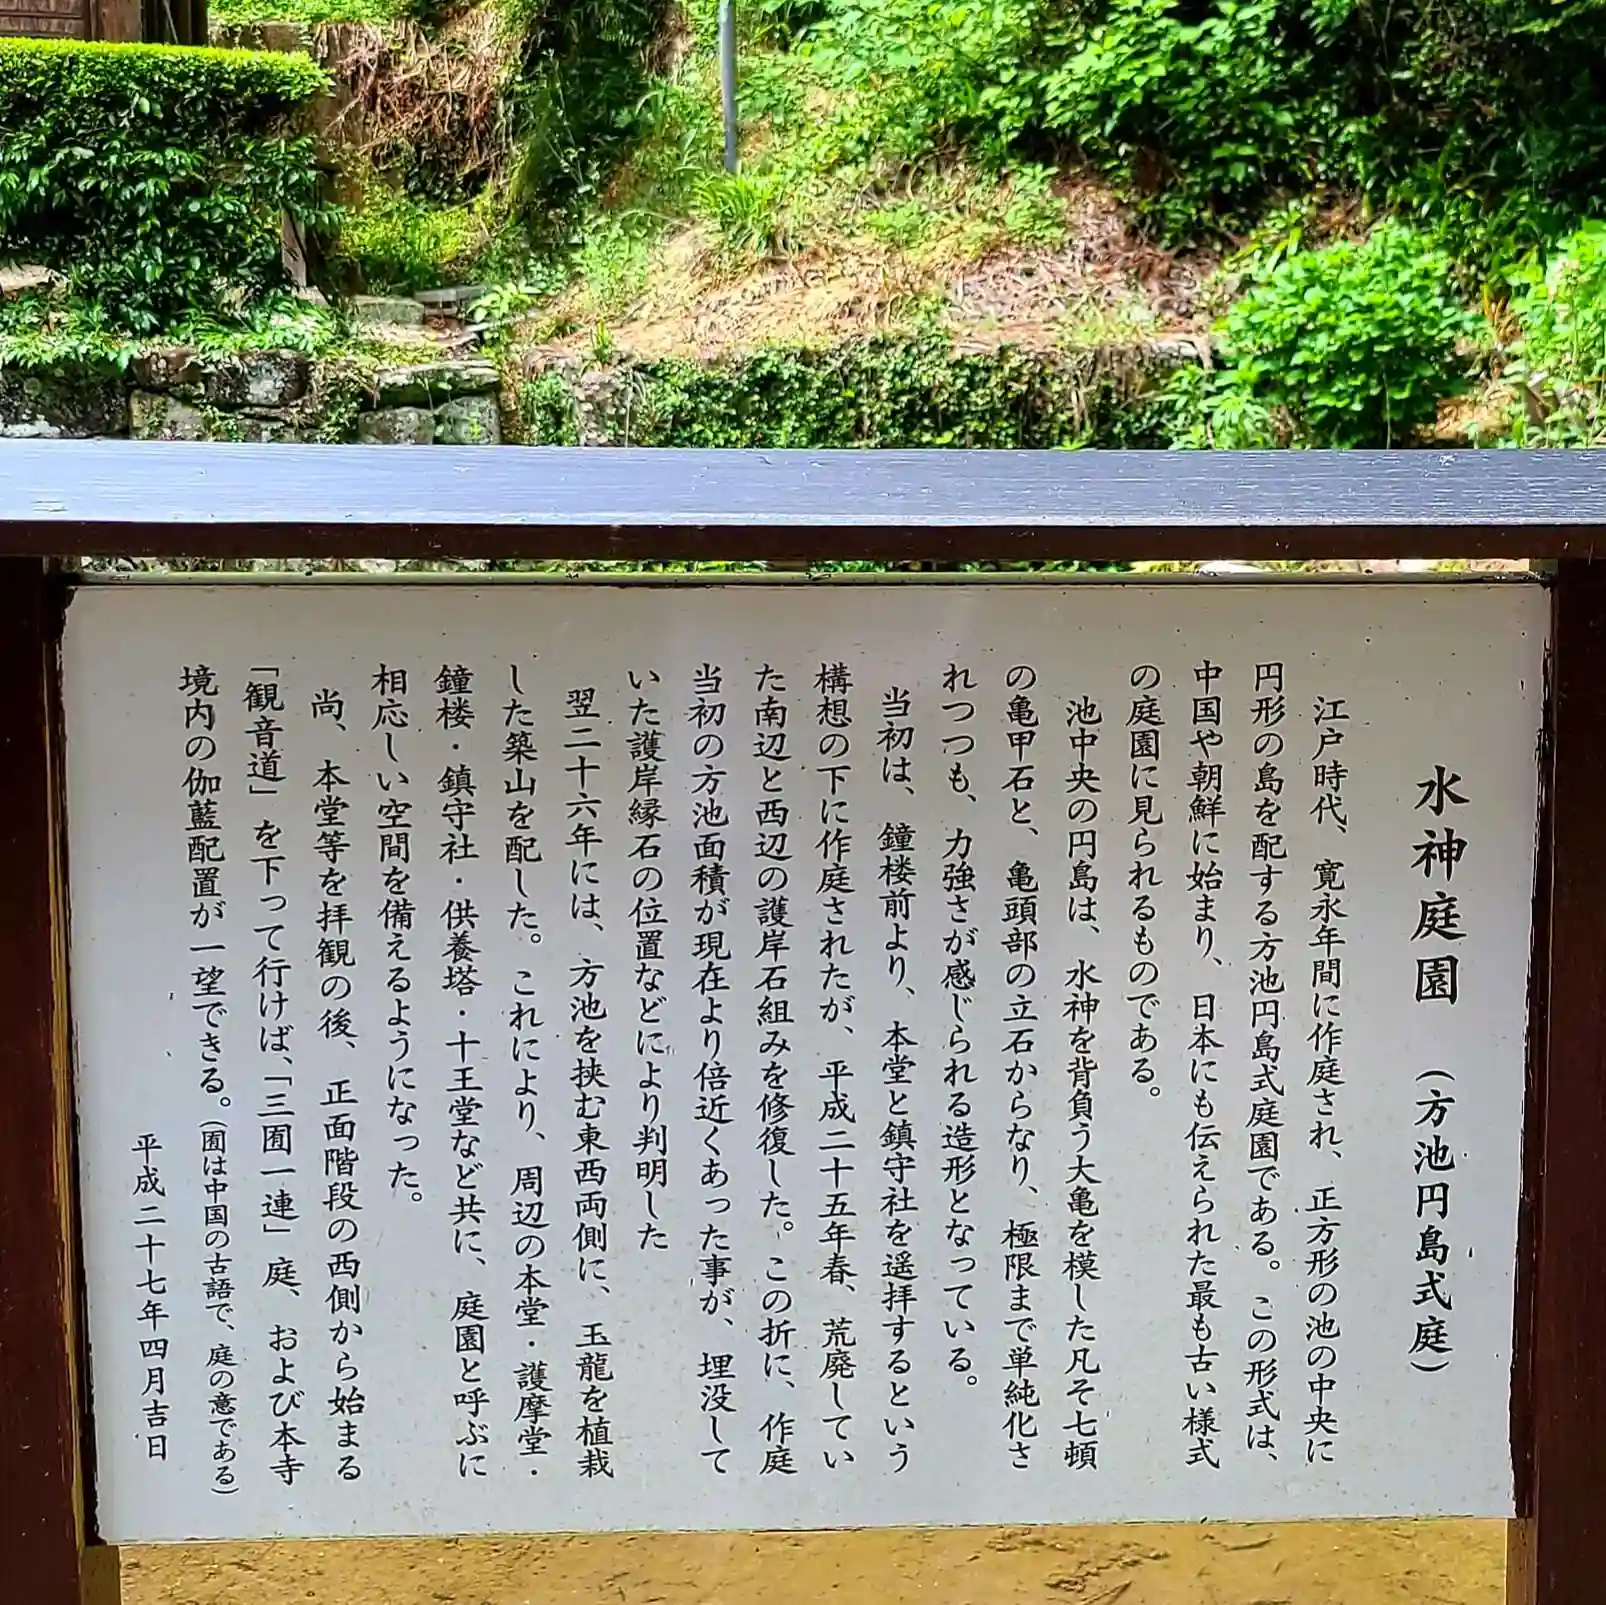 水神庭園（方池円島式庭）
江戸時代、寛永年間に作庭され、正方形の池の中央に
円形の島を配する方池円島式庭園である。この形式は、
中国や朝鮮に始まり、日本にも伝えられた最も古い様式
の庭園に見られるものである。
池中央の円島は、水神を背負う大亀を模した凡そ七頓
の亀甲石と、亀頭部の立石からなり、極限まで単純化さ
れつつも、力強さが感じられる造形となっている。
当初は、鐘楼前より、本堂と鎮守社を遥拝するという
構想の下に作庭されたが、平成二十五年春、荒廃してい
た南辺と西辺の護岸石組みを修復した。この折に、作庭
当初の方池面積が現在より倍近くあった事が、埋没して
いた護岸縁石の位置などにより判明した
翌二十六年には、方池を挟む東西両側に、玉龍を植栽
した築山を配した。これにより、周辺の本堂・護摩堂・
鐘楼・鎮守社・供養塔・十王堂など共に、庭園と呼ぶに
相応しい空間を備えるようになった。
尚、本堂等を拝観の後、正面階段の西側から始まる
「観音道」を下って行けば、「三囿一連」庭、および本寺
境内の伽藍配置が一望できる。（囿は中国の古語で、庭の意である）
平成二十七年四月吉日